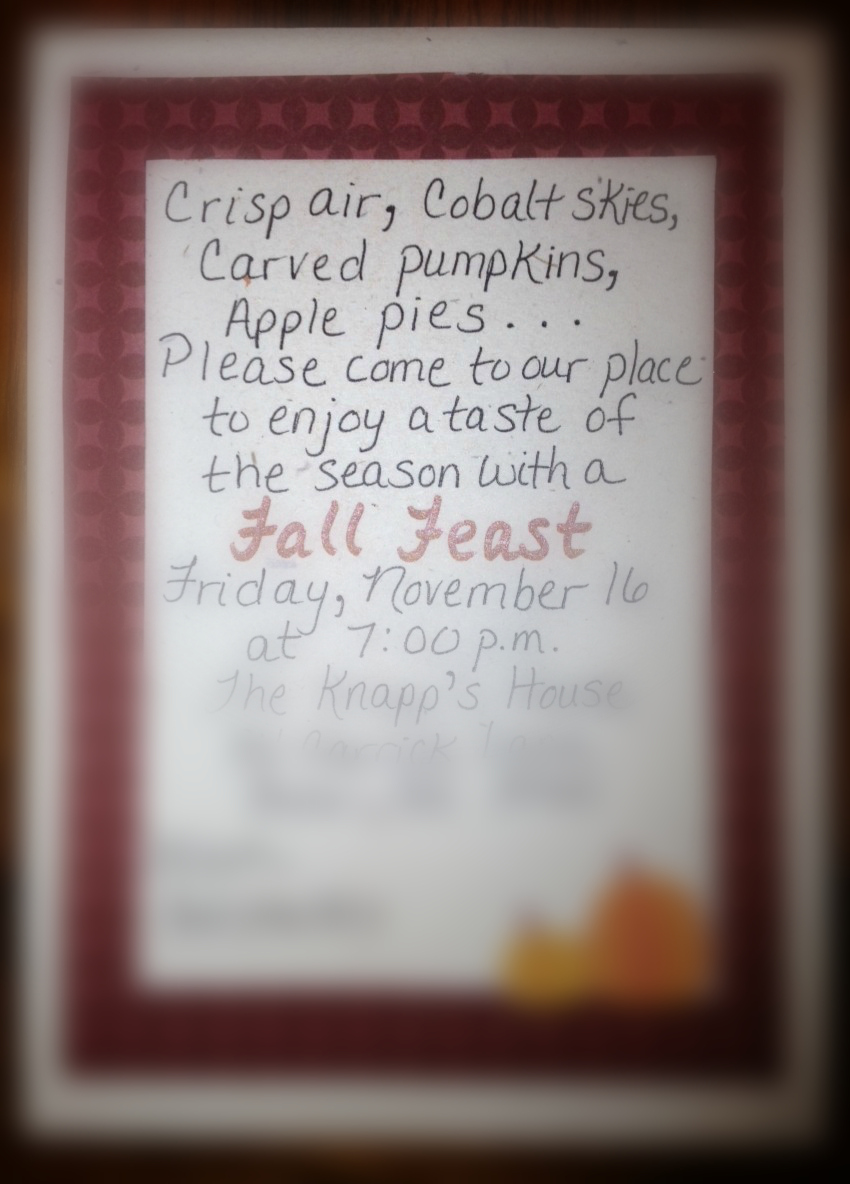 Crisp air, Cobalt skies,
Carved pumpkins,
Apple pies...
Please come to our place
to enjoy a taste of
the season with a
Fall Feast
Friday, November 16
at 7:00 p.m.
The Knapp's House
Carrick